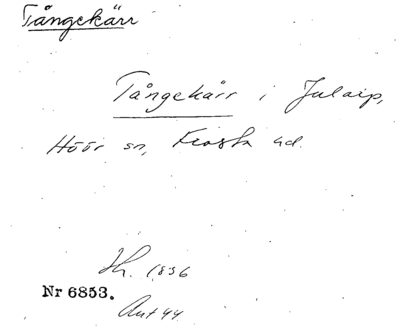 Tångekärr
Tångekärr i Julaip,
Höör sn, Frosta hd.
Sk. 1836
Nr 6853.
Ant 44